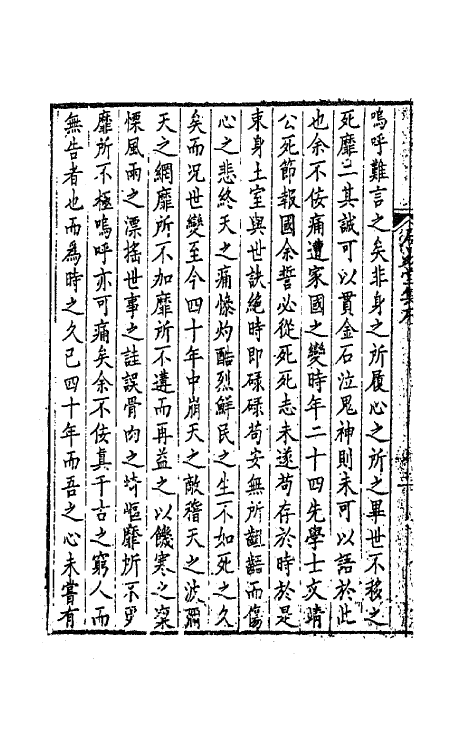 嗚呼難言之矣非身之所履心之所之畢世不移之
死靡二其誠可以貫金石泣鬼神則未可以語於此
也余不佞痛遭家國之變時年二十四先學士文晴
公死節報國余誓必從死死志未遂苟存於時於是
束身土室與世訣絕時即碌碌苟安無所齟齬而傷
心之悲終天之痛慘灼酷烈鮮民之生不如死之久
矣而況世變至今四十年中崩天之敵稽天之波彌
天之網靡所不加靡所不遘而再益之以饑寒之窶
慄風雨之漂搖世事之詿誤骨肉之崎嶇靡所不罗
靡所不極嗚呼亦可痛矣余不佞真千古之窮人而
無告者也而為時之久已四十年而吾之心未嘗有